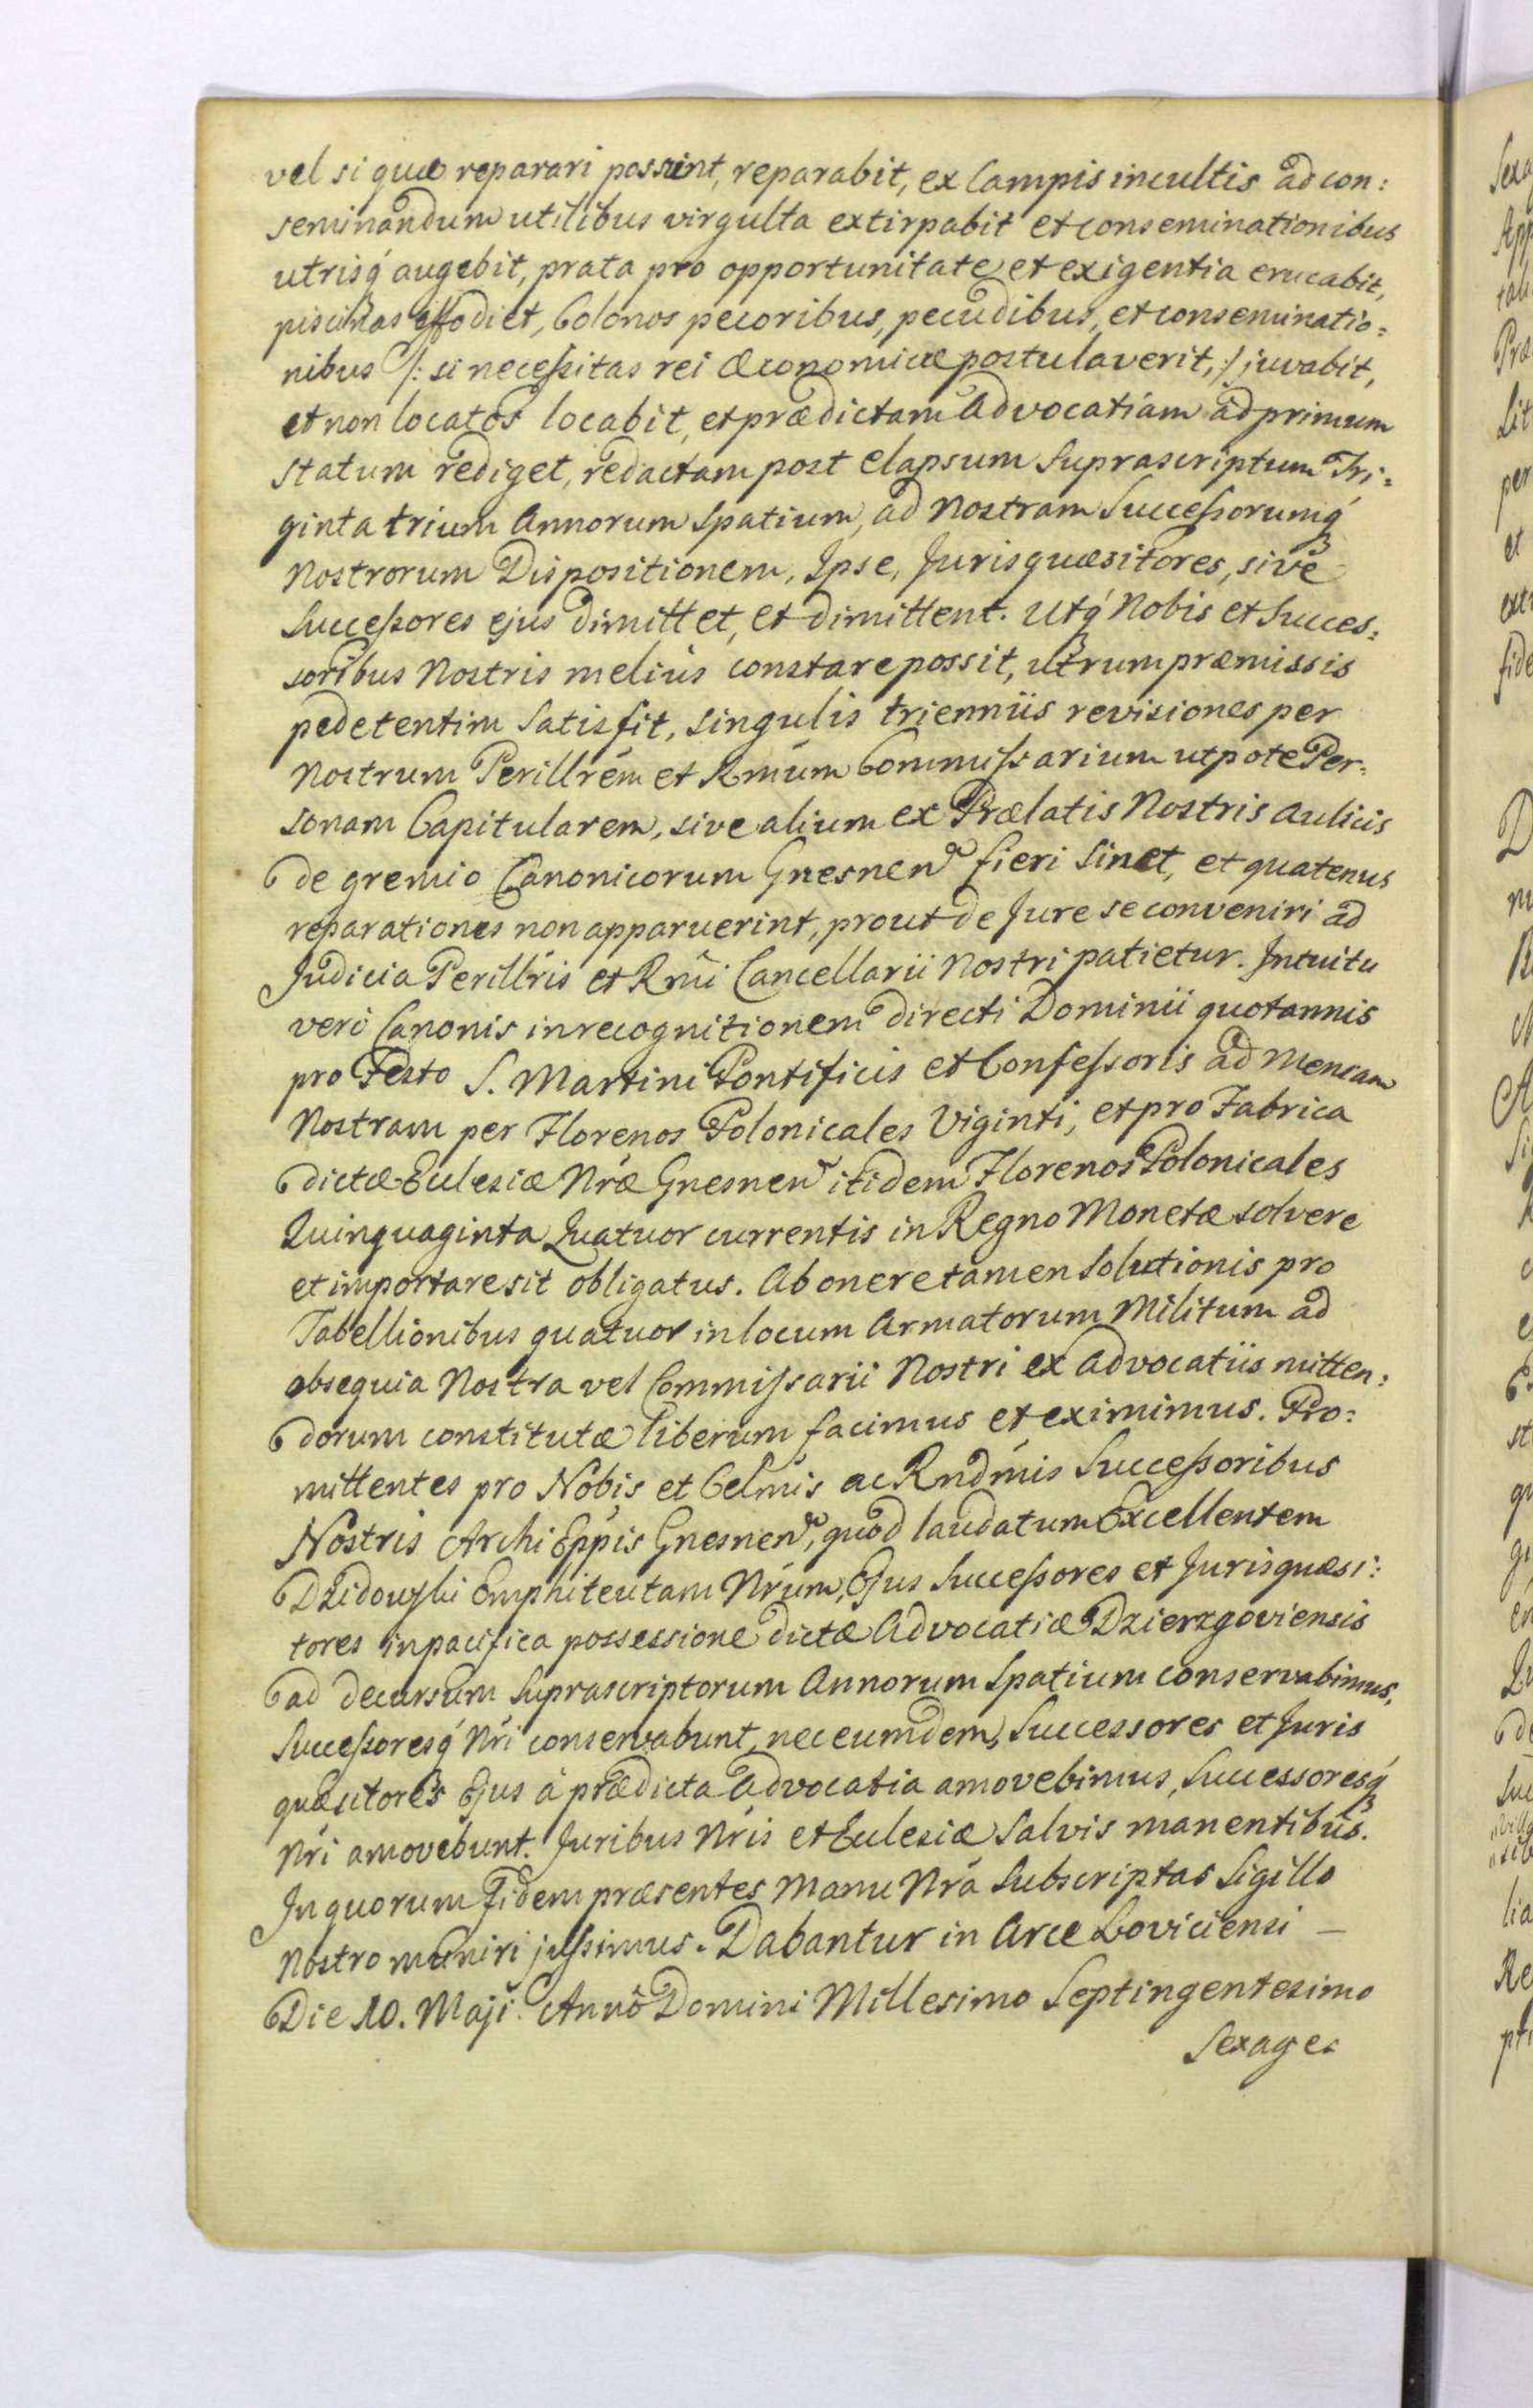 vel si quæ reparari possint, reparabit, ex Campis incultis ad con:
seminandum utilibus virgulta extirpabit et conseminationibus
utrisq́ augebit, prata pro opportunitate et exigentia erucabit,
piscinas effodiet, Colonos pecoribus, pecudibus, et conseminatio:
nibus /: si necessitas rei œconomicæ postulaverit, :/ juvabit,
et non locatos locabit, et prædictam Advocatiam ad primum
statum rediget, redactam post elapsum Suprascriptum Tri:
ginta trium Annorum Spatium, ad Nostram Successorumq́
Nostrorum Dispositionem, Ipse, Jurisquæsitores, sive
Successores ejus dimittet, et dimittent. Utq́ Nobis et Succes:
soribus Nostris melius constare possit, utrum præmissis
pedetentim Satisfit, singulis trienniis revisiones per
Nostrum Perillrem et Rmum Commissarium utpote Per:
sonam Capitularem, sive alium ex Prælatis Nostris Aulicis
de gremio Canonicorum Gnesnen fieri Sinet, et quatenus
reparationes non apparuerint, prout de Jure se conveniri ad
Judicia Perillris et Rmi Cancellarii Nostri patietur. Intuitu
veri Canonis in recognitionem directi Dominii quotannis
pro Festo S. Martini Pontificis et Confessoris ad Mensam
Nostram per Florenos Polonicales Viginti, et pro Fabrica
dictæ Ecclesiæ Nræ Gnesnen itidem Florenos Polonicales
Quinquaginta Quatuor currentis in Regno Monetæ solvere
et importare sit obligatus. Ab onere tamen Solutionis pro
Tabellionibus quatuor in locum Armatorum Militum ad
obsequia Nostra vel Commissarii Nostri ex Advocatiis mitten:
dorum constitutæ liberum facimus et eximimus. Pro:
mittentes pro Nobis et Celmis ac Rndmis Successoribus
Nostris Archi Eppis Gnesnen, quod laudatum Excellentem
Dzidowski Emphiteutam Nrum, Ejus Successores et Jurisquæsi:
tores in pacifica possessione dictæ Advocatiæ Dzierzgoviensis
ad decursum Suprascriptorum Annorum Spatium conservabimus,
Successoresq́ Nri conservabunt, nec eumdem, Successores et Juris
quæsitores Ejus à prædicta Advocatia amovebimus, Successoresq́
Nri amovebunt. Juribus Nris et Ecclesiæ Salvis manentibus.
In quorum Fidem præsentes Manu Nra Subscriptas Sigillo
Nostro muniri jussimus. Dabantur in Arce Loviciensi —
Die 10. Maji. Annô Domini Millesimo Septingentesimo
Sexages